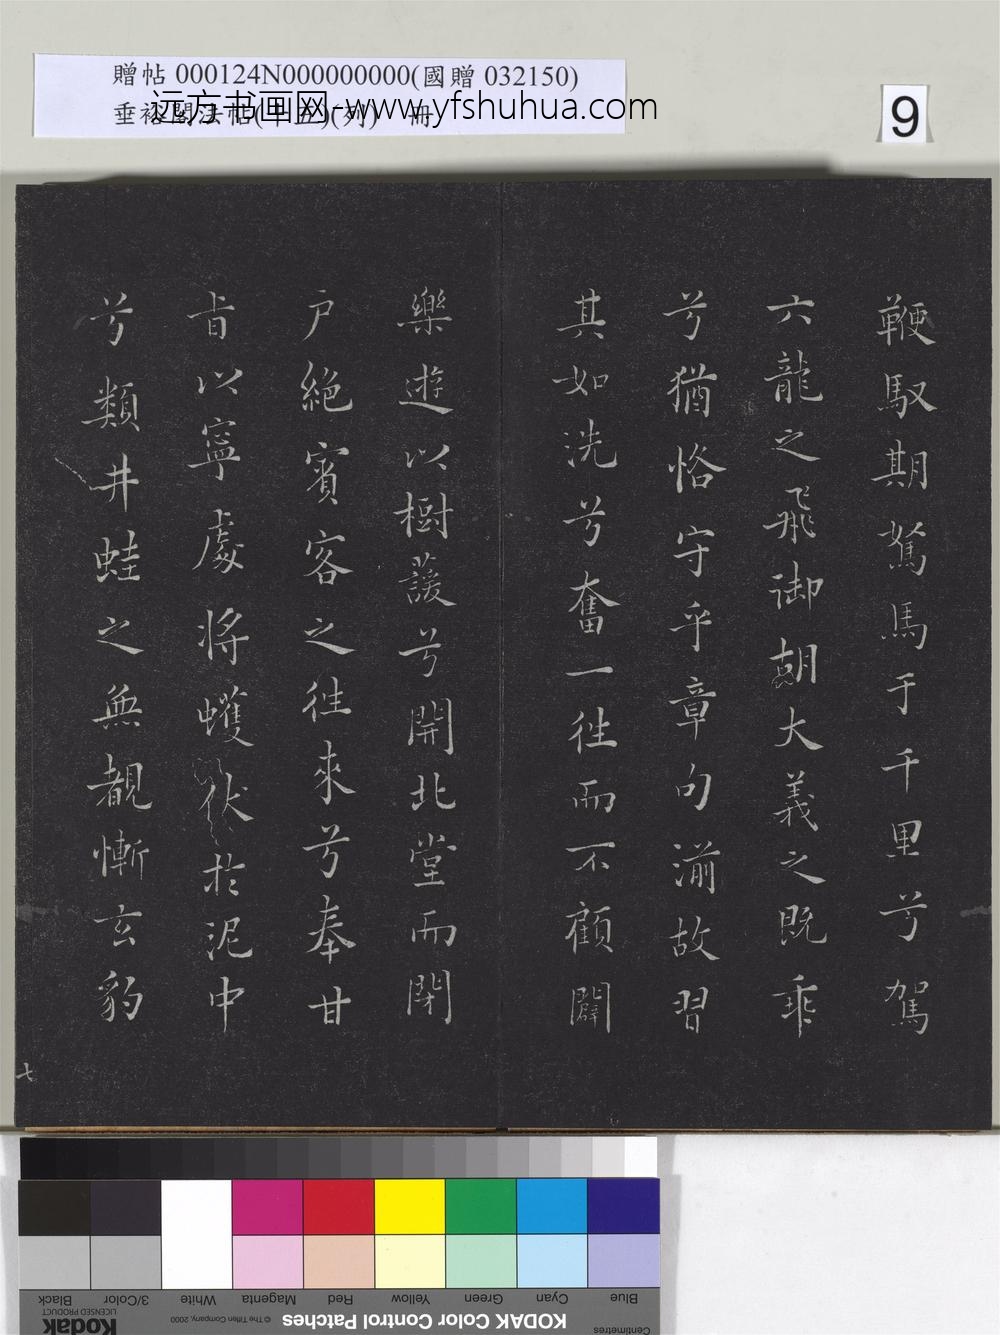 贈帖 000124N000000000(國贈 032150)
垂裕閣法帖(年五)(列) 冊
远方书画网-www.yfshuhua.com
9
鞭馭期駑馬于千里兮駕
六龍之飛御朝大義之既乖
兮猶恪守乎章句湔故習
其如洗兮奮一往而不顧闢
樂遊以樹蘐兮開北堂而閉
户絶賓客之往來兮奉甘
旨以寧處將蠖伏於泥中
兮類井蛙之無覩慚玄豹
七
Black
3/Color
White
Magenta
Red
Yellow
Green
Cyan
Blue
LICENSED PRODUCT
Kodak
© The Tiffen Company, 2000
KODAK Color Control Patches
Centimetres